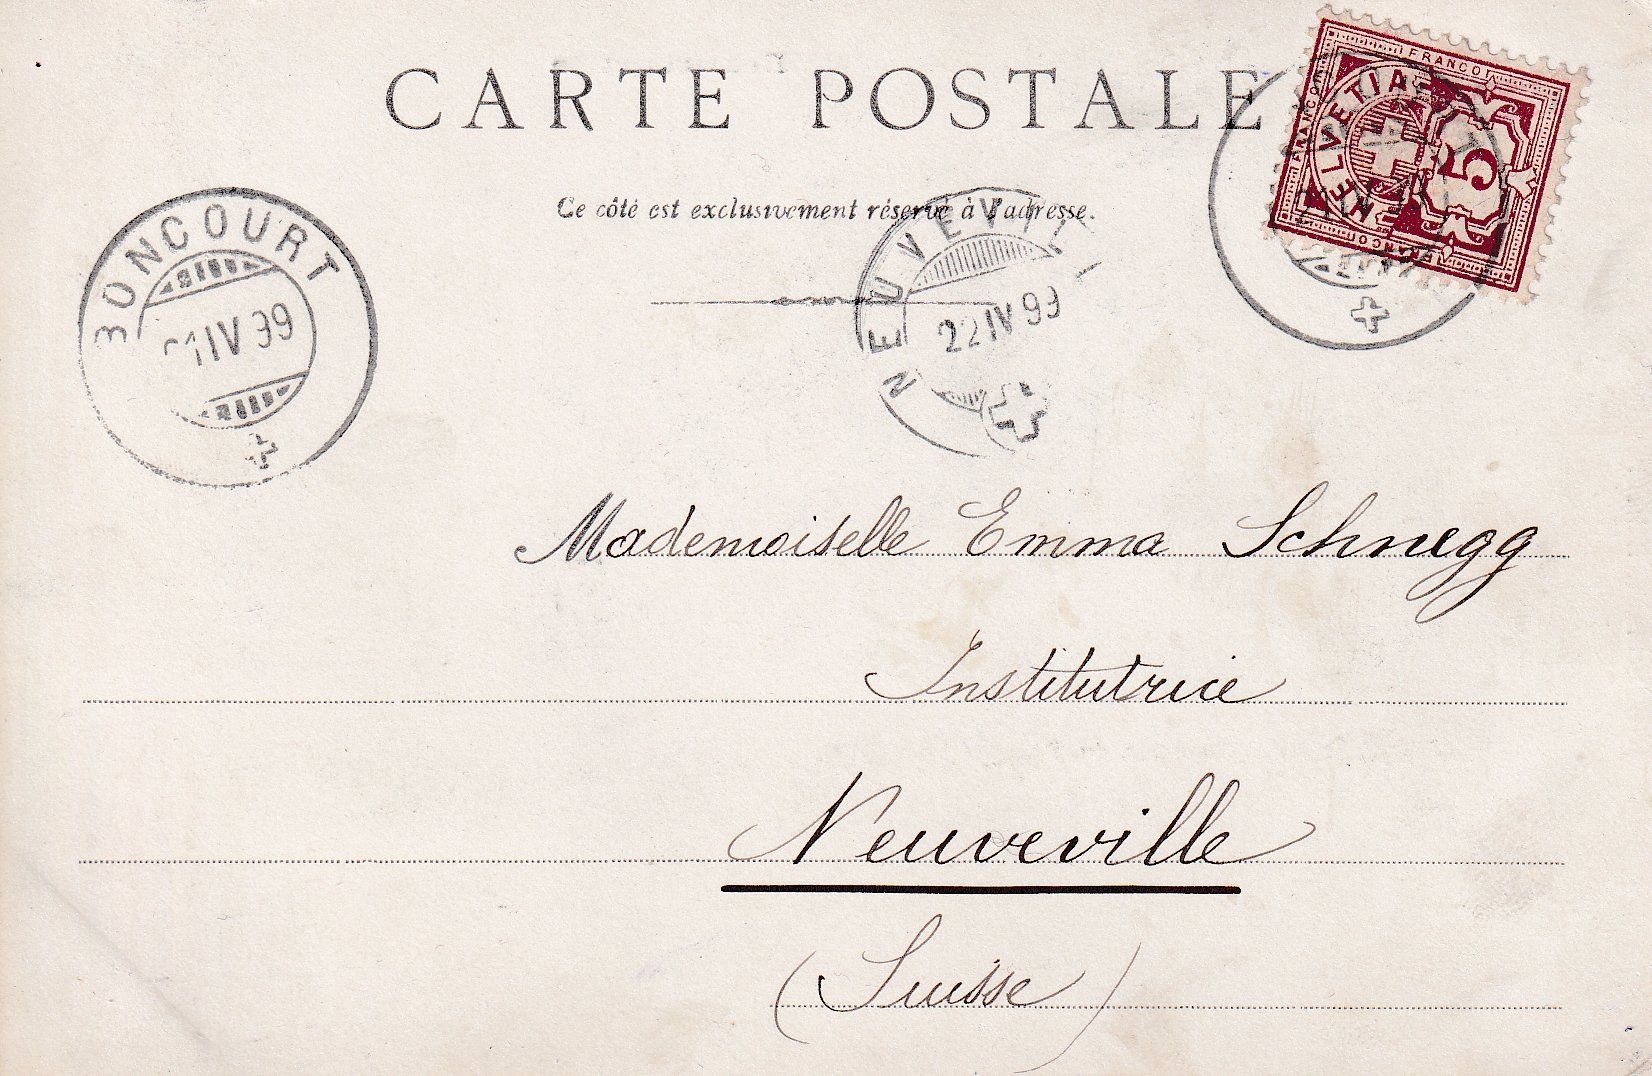 CARTE POSTALE
Ce côté est exclusivement réservé à l'adresse.
FRANCO
FRANCO
HELVETIA
5
FRANCO
BONCOURT
21 IV 99
NEUVEVIL
22 IV 99
Mademoiselle Emma Schnegg
Institutrice
Neuveville
(Suisse)